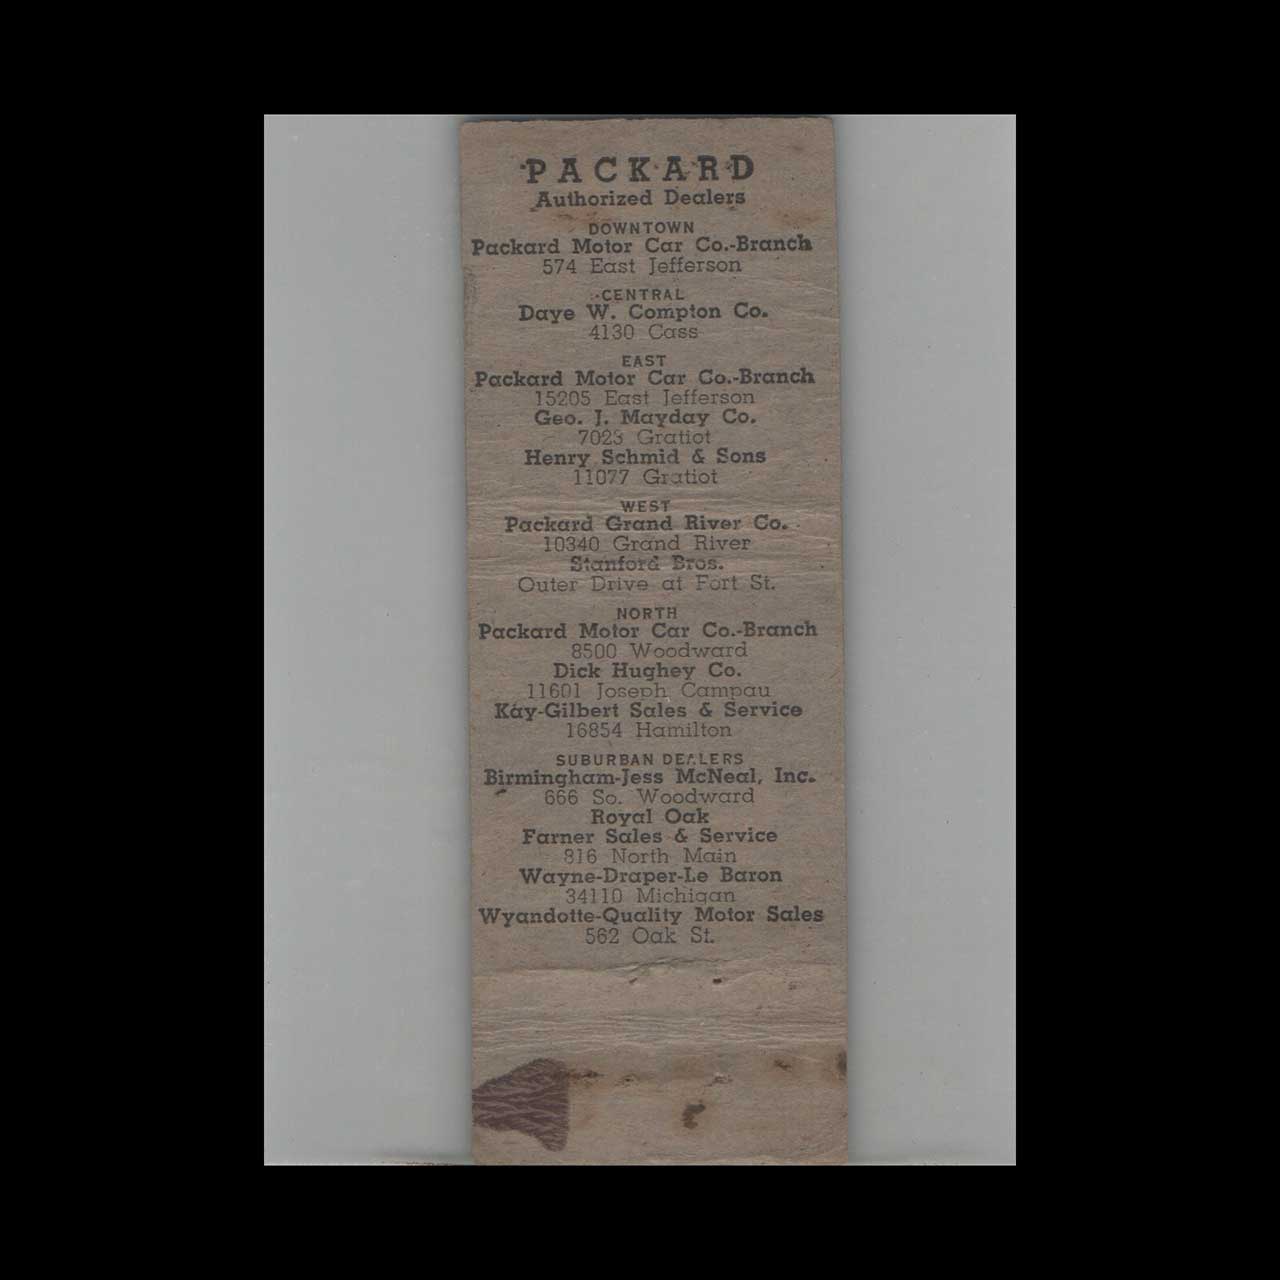 PACKARD
Authorized Dealers
DOWNTOWN
Packard Motor Car Co.-Branch
574 East Jefferson
CENTRAL
Daye W. Compton Co.
4130 Cass
EAST
Packard Motor Car Co.-Branch
15205 East Jefferson
Geo. J. Mayday Co.
7023 Gratiot
Henry Schmid & Sons
11077 Gratiot
WEST
Packard Grand River Co.
10340 Grand River
Stanford Bros.
Outer Drive at Fort St.
NORTH
Packard Motor Car Co.-Branch
8500 Woodward
Dick Hughey Co.
11601 Joseph Campau
Kay-Gilbert Sales & Service
16854 Hamilton
SUBURBAN DEALERS
Birmingham-Jess McNeal, Inc.
666 So. Woodward
Royal Oak
Farner Sales & Service
816 North Main
Wayne-Draper-Le Baron
34110 Michigan
Wyandotte-Quality Motor Sales
562 Oak St.